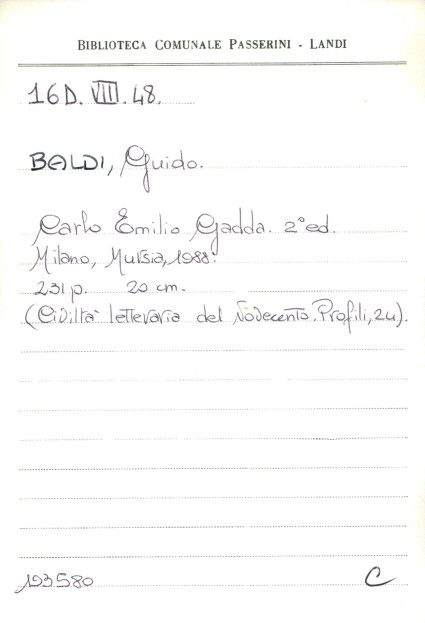 BIBLIOTECA COMUNALE PASSERINI - LANDI
16D. VIII. 48.
BALDI, Guido.
Carlo Emilio Gadda. 2° ed.
Milano, Mursia, 1988.
231 p. 20 cm.
(Civiltà letteraria del Novecento. Profili, 24).
193580
C